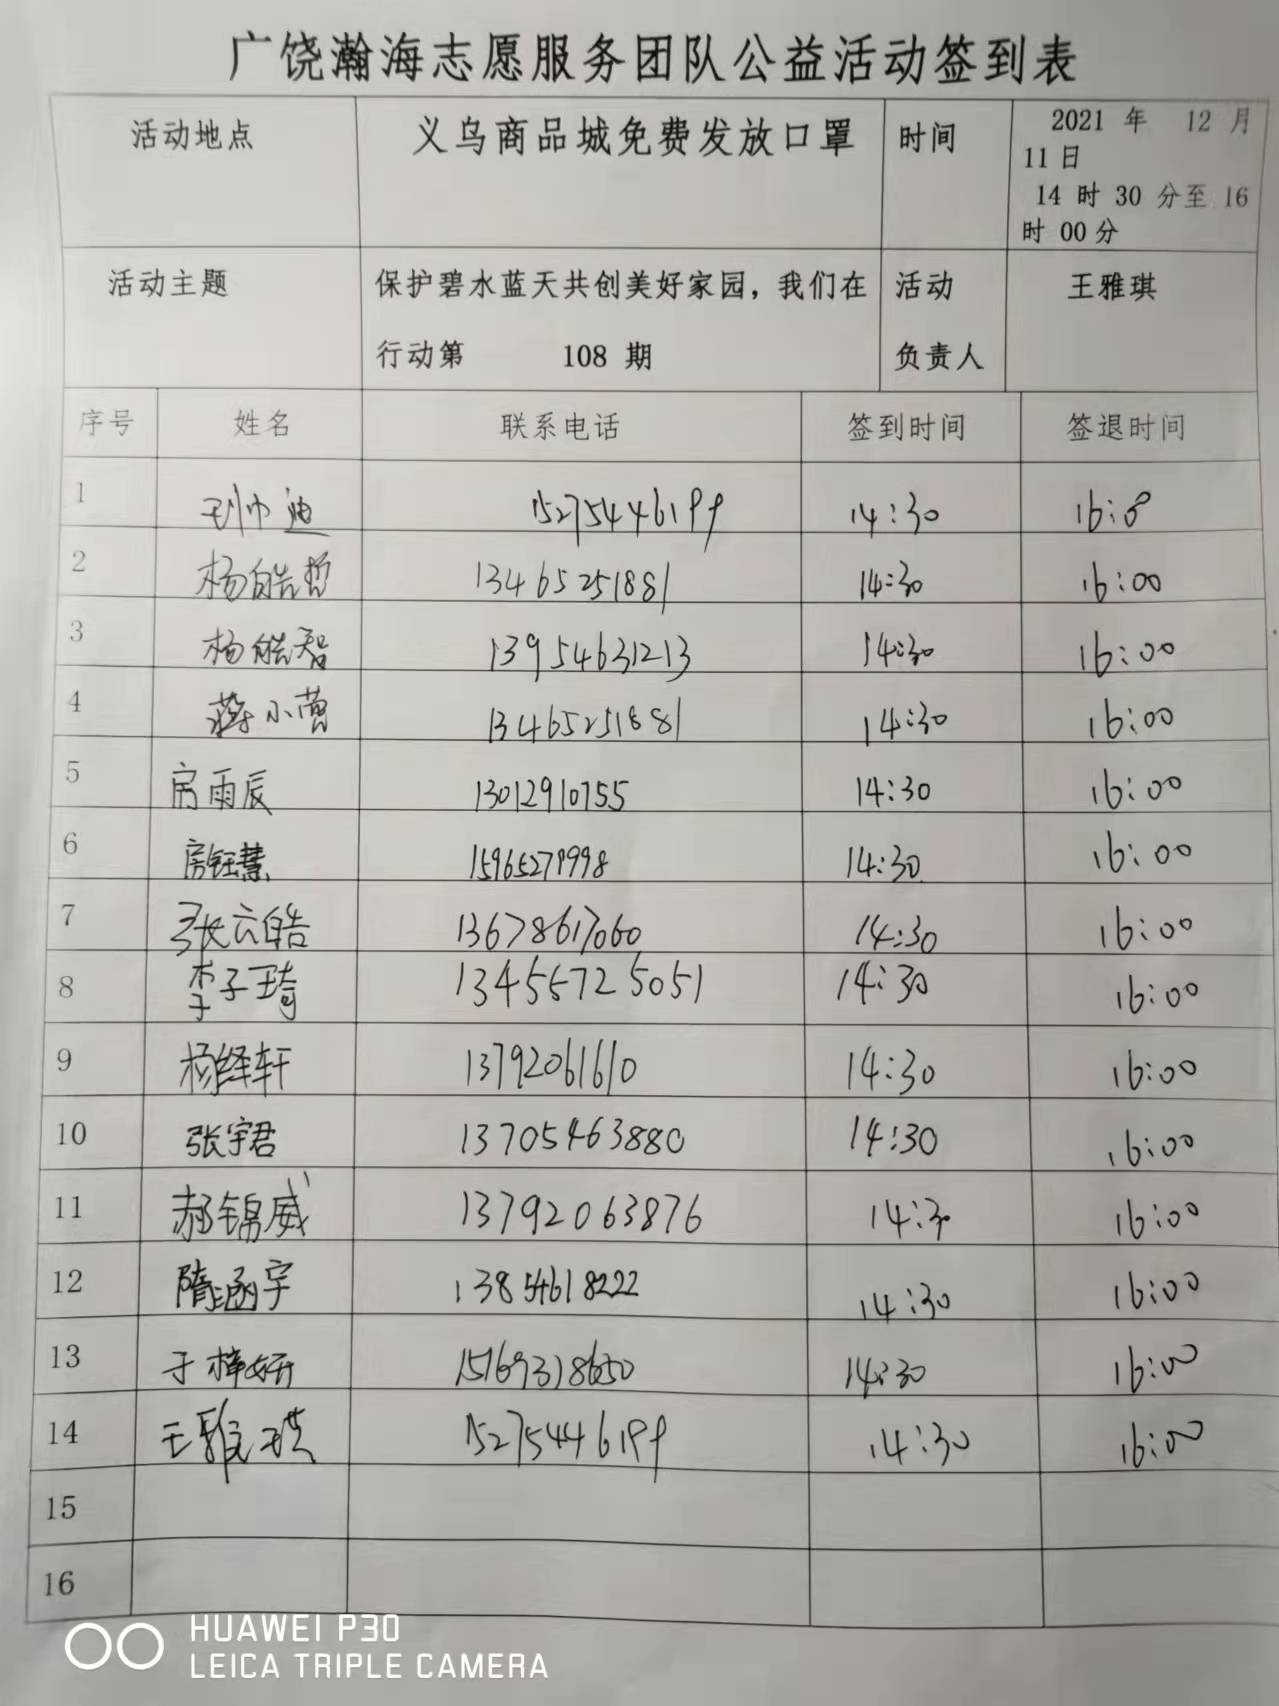 广饶瀚海志愿服务团队公益活动签到表
活动地点 义乌商品城免费发放口罩 时间 2021 年 12 月
11日
14 时 30 分至 16
时 00分
活动主题 保护碧水蓝天共创美好家园，我们在 活动 王雅琪
行动第 108 期 负责人
序号 姓名 联系电话 签到时间 签退时间
1 15275446199 14:30
2 杨皓哲 13465251881 14:30 16:00
3 杨皓智 13954631213 14:30 16:00
4 蒋小营 13465251881 14:30 16:00
5 房雨辰 13012910755 14:30 16:00
6 房钰慧 14:30 16:00
7 张云皓 13678617060 14:30 16:00
8 李子琦 13455725051 14:30 16:00
9 杨绎轩 13792061610 14:30 16:00
10 张宇君 13705463880 14:30 16:00
11 郝锦威 13792063876 14:30 16:00
12 隋涵宇 13854618222 14:30 16:00
13 于梓妍 15169318650 14:30 16:00
14 王雅琪 15275446199 14:30 16:00
15
16
HUAWEI P30
LEICA TRIPLE CAMERA